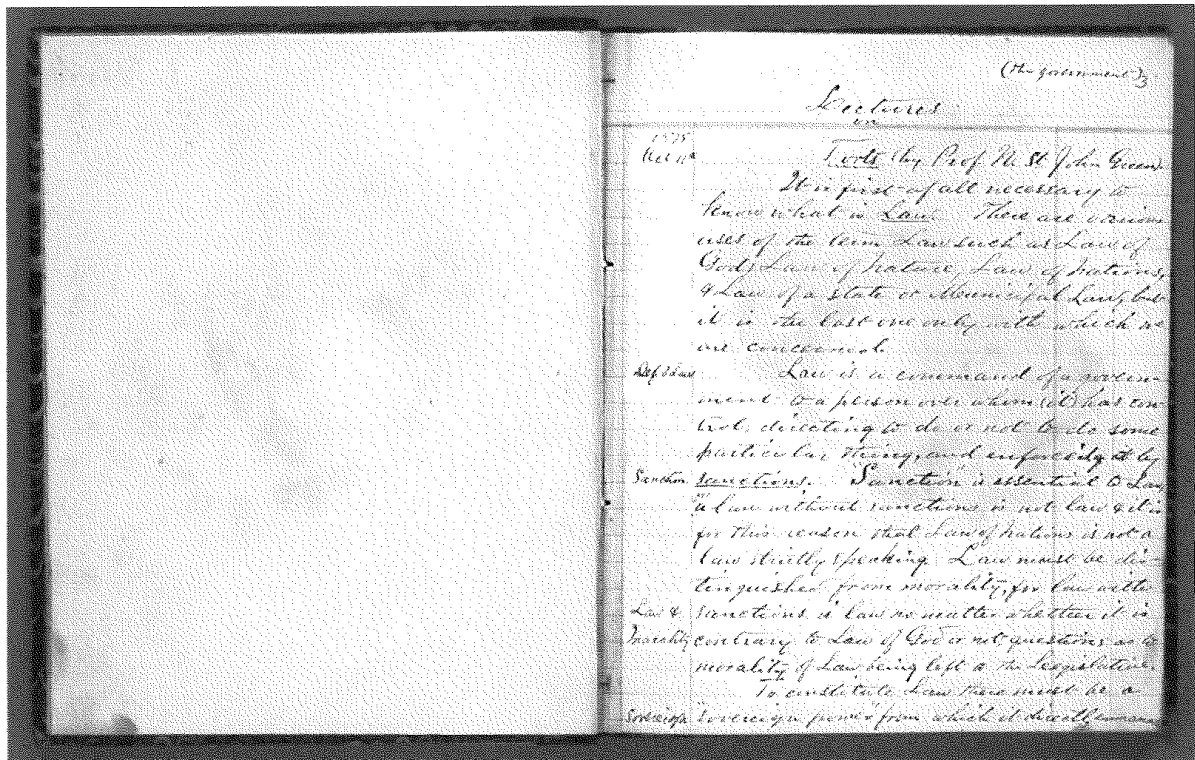 (the government)
Lectures
on
1875
Oct 11th
Torts (by Prof N. St John Green
It is first of all necessary to
know what is Law. There are various
uses of the term Law such as Law of
God, Law of Nature, Law of Nations,
& Law of a state or Municipal Law, but
it is the last one only with which we
are concerned.
Def of Law
Law is a command of a govern-
ment to a person over whom (it) has con-
trol, directing to do or not to do some
particular thing, and enforcing it by
Sanction
sanctions. Sanction is essential to Law
a law without sanctions is not law & it is
for this reason that Law of Nations is not a
law strictly speaking. Law must be dis-
tinguished from morality, for law with
Law &
sanctions is law no matter whether it is
Morality
contrary to Law of God or not, questions as to
morality of Law being left to the Legislature.
To constitute Law there must be a
Sovereign
Sovereign power from which it directly